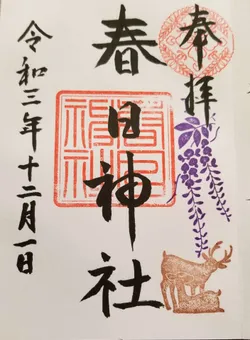 奉拝
春日神社
令和三年十二月一日